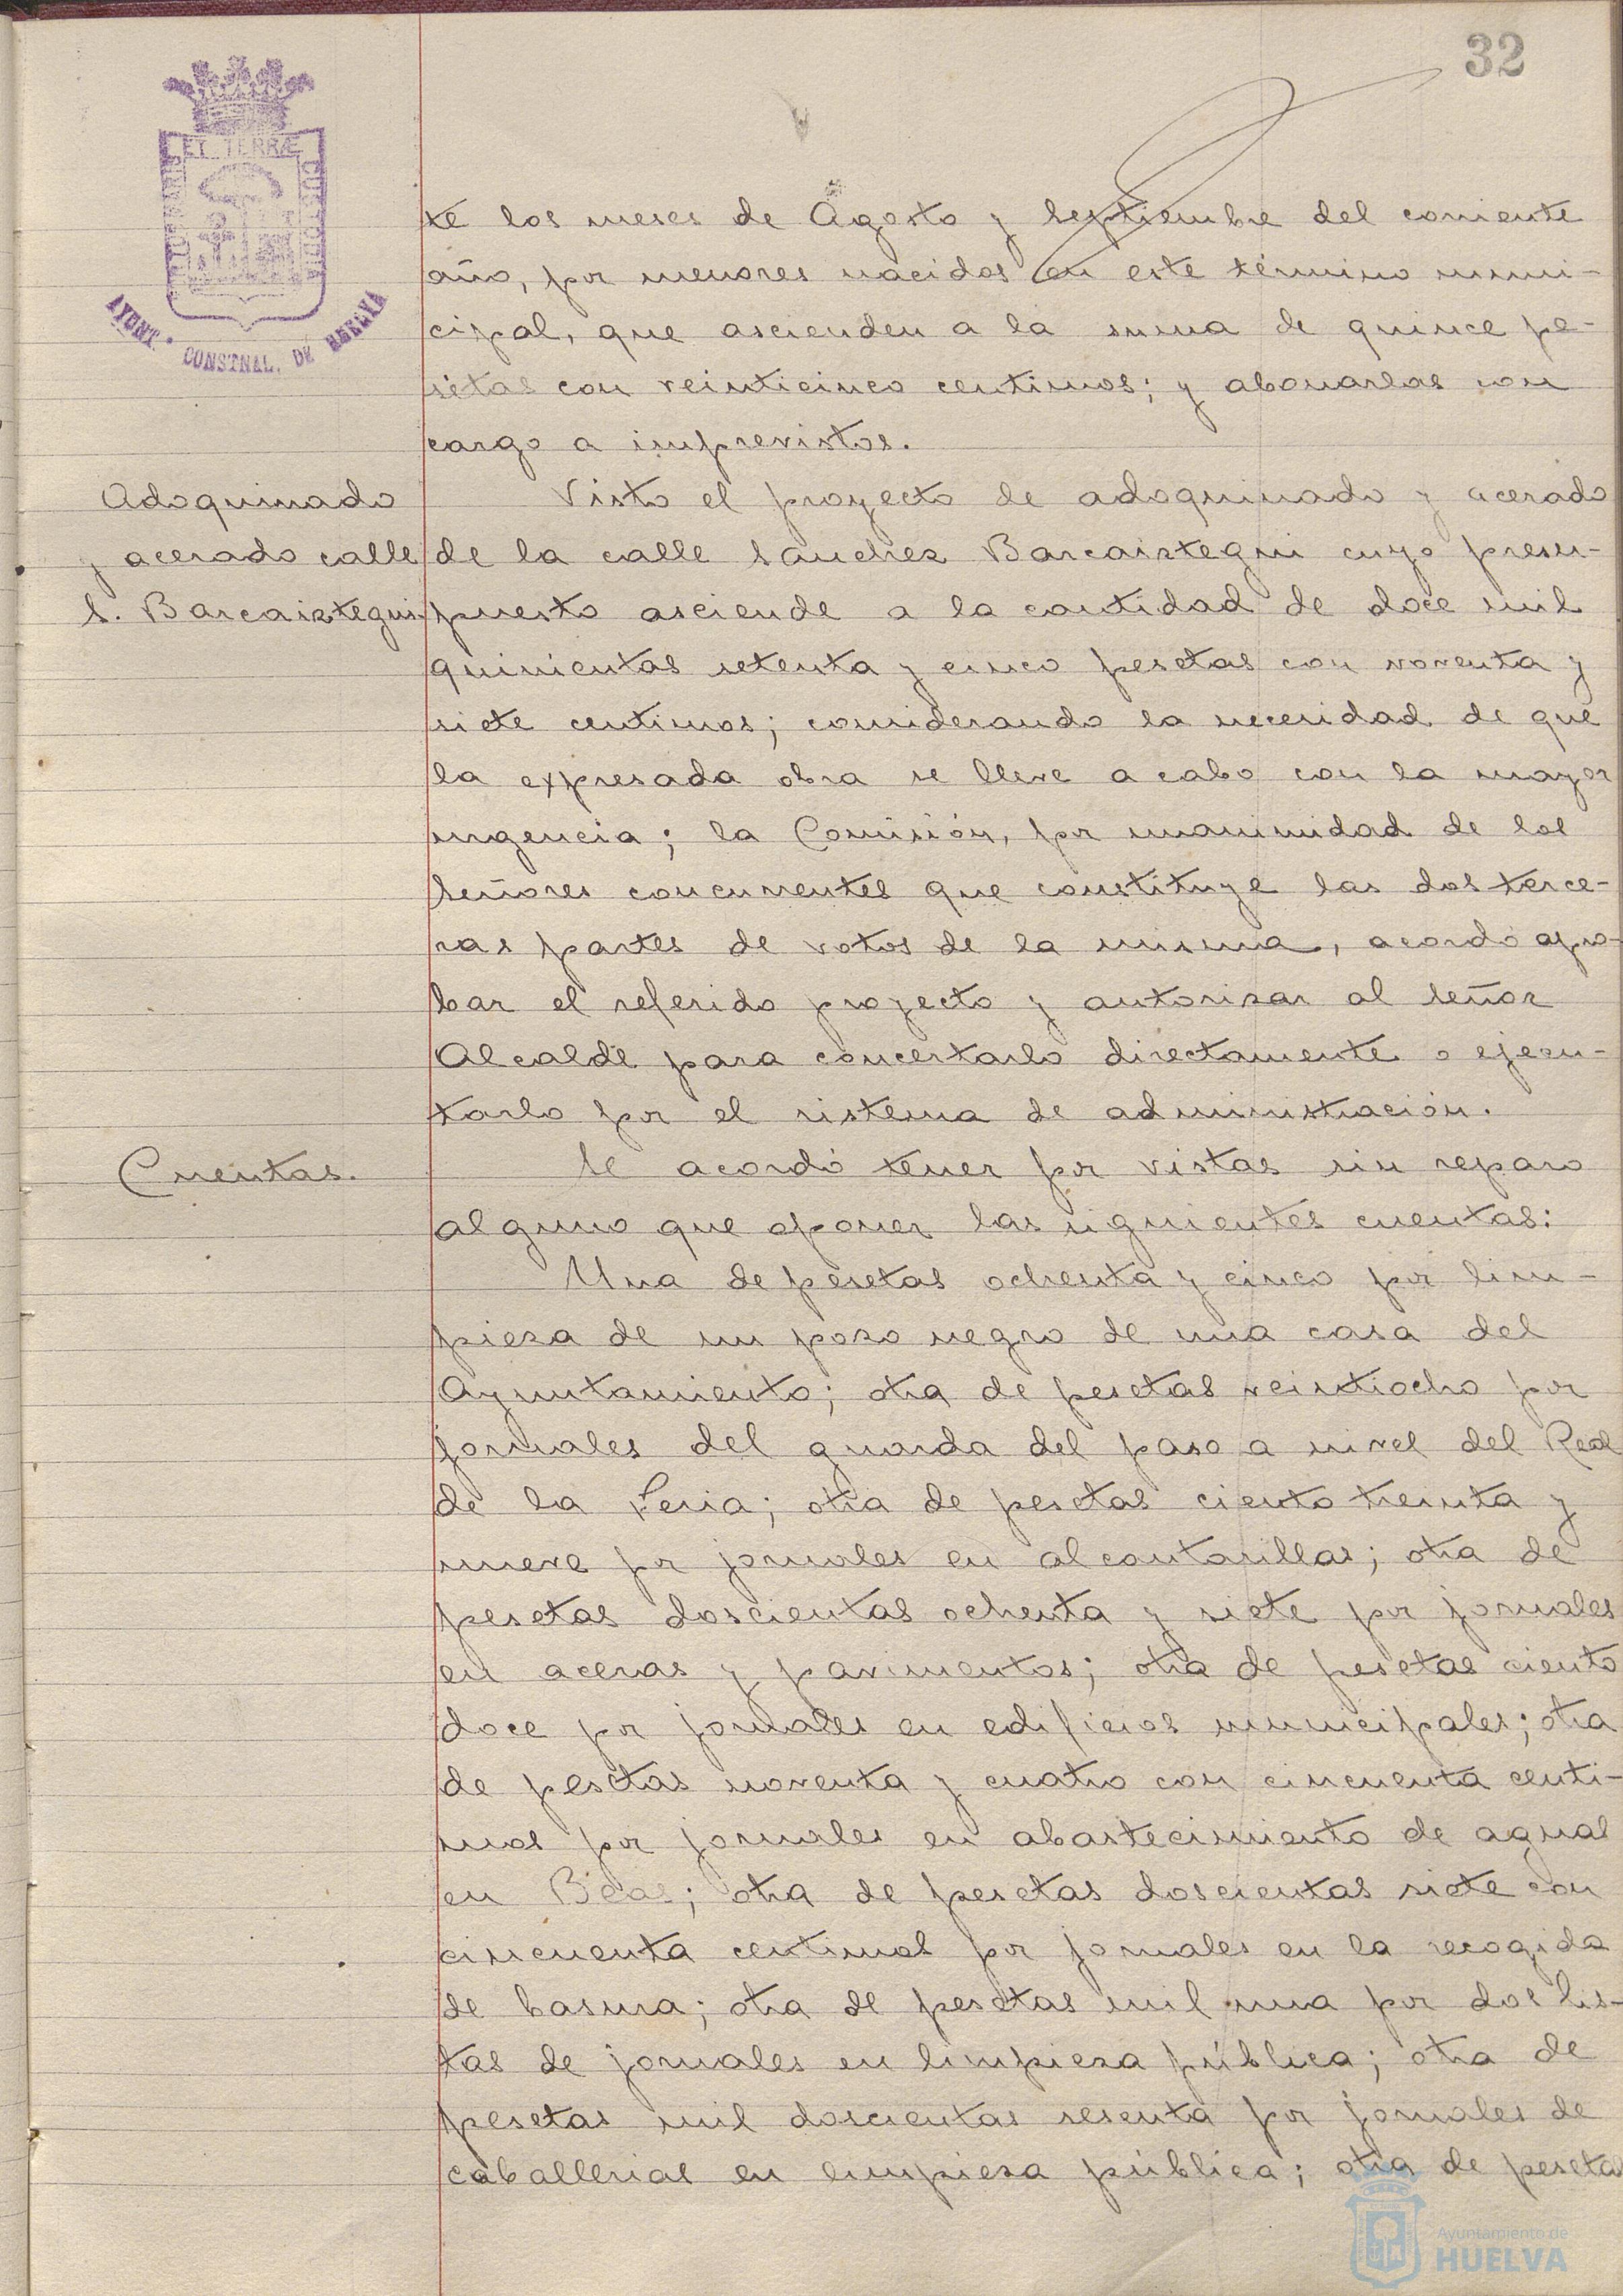 32
PORTUS MARIS ET TERRÆ CUSTODIA
AYUNT. CONSTNAL. DE HUELVA
te los meses de Agosto y Septiembre del corriente
año, por menores nacidos en este término muni-
cipal, que ascienden a la suma de quince pe-
setas con veinticinco centimos; y abonarlas con
cargo a imprevistos.
Adoquinado
y acerado calle
S. Barcaiztegui.
Visto el proyecto de adoquinado y acerado
de la calle Sanchez Barcaiztegui cuyo presu-
puesto asciende a la cantidad de doce mil
quinientas setenta y cinco pesetas con noventa y
siete centimos; considerando la necesidad de que
la expresada obra se lleve a cabo con la mayor
urgencia; la Comisión, por unanimidad de los
Señores concurrentes que constituye las dos terce-
ras partes de votos de la misma, acordó apro-
bar el referido proyecto y autorizar al Señor
Alcalde para concertarlo directamente o ejecu-
tarlo por el sistema de administración.
Cuentas.
Se acordó tener por vistas sin reparo
alguno que oponer las siguientes cuentas:
Una de pesetas ochenta y cinco por lim-
pieza de un pozo negro de una casa del
Ayuntamiento; otra de pesetas veintiocho por
jornales del guarda del paso a nivel del Real
de la Feria; otra de pesetas ciento treinta y
nueve por jornales en alcantarillas; otra de
pesetas doscientas ochenta y siete por jornales
en aceras y pavimentos; otra de pesetas ciento
doce por jornales en edificios municipales; otra
de pesetas noventa y cuatro con cincuenta centi-
mos por jornales en abastecimiento de aguas
en Beas; otra de pesetas doscientas siete con
cincuenta centimos por jornales en la recogida
de basura; otra de pesetas mil una por dos lis-
tas de jornales en limpieza pública; otra de
pesetas mil doscientas sesenta por jornales de
caballerias en limpieza pública; otra de peseta
Ayuntamiento de
HUELVA